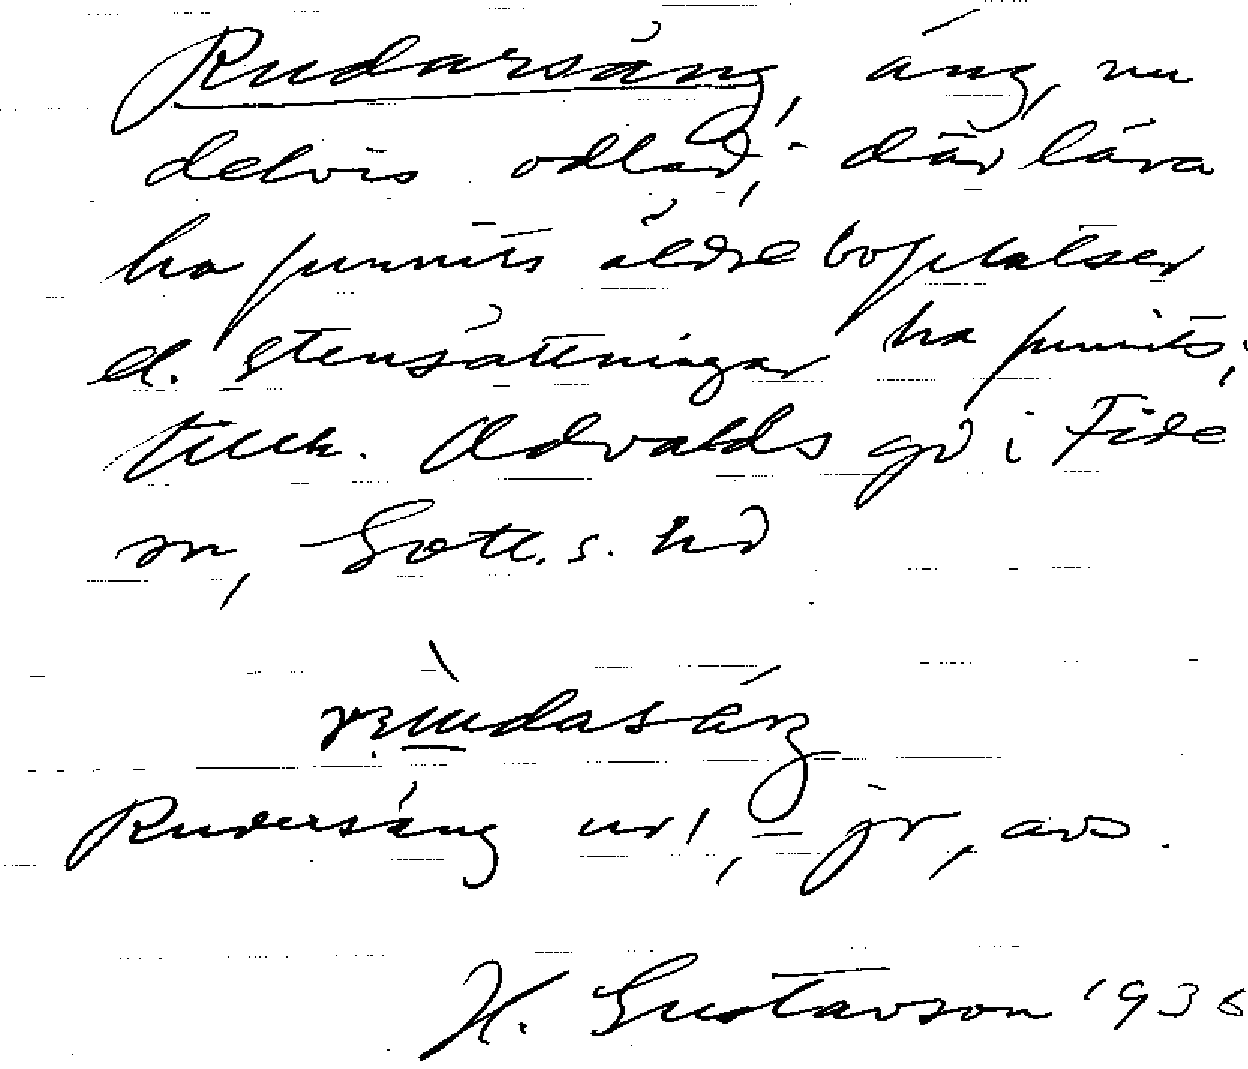 Rudarsäng, äng, nu
delvis odlad; där lära
ha funnits äldre boplatser
el. stensättningar ha funnits;
tillh. Odvalds gd i Fide
sn, Gotl. s. hd
Rudersäng url, - jr, avs.
H. Gustavson 1936